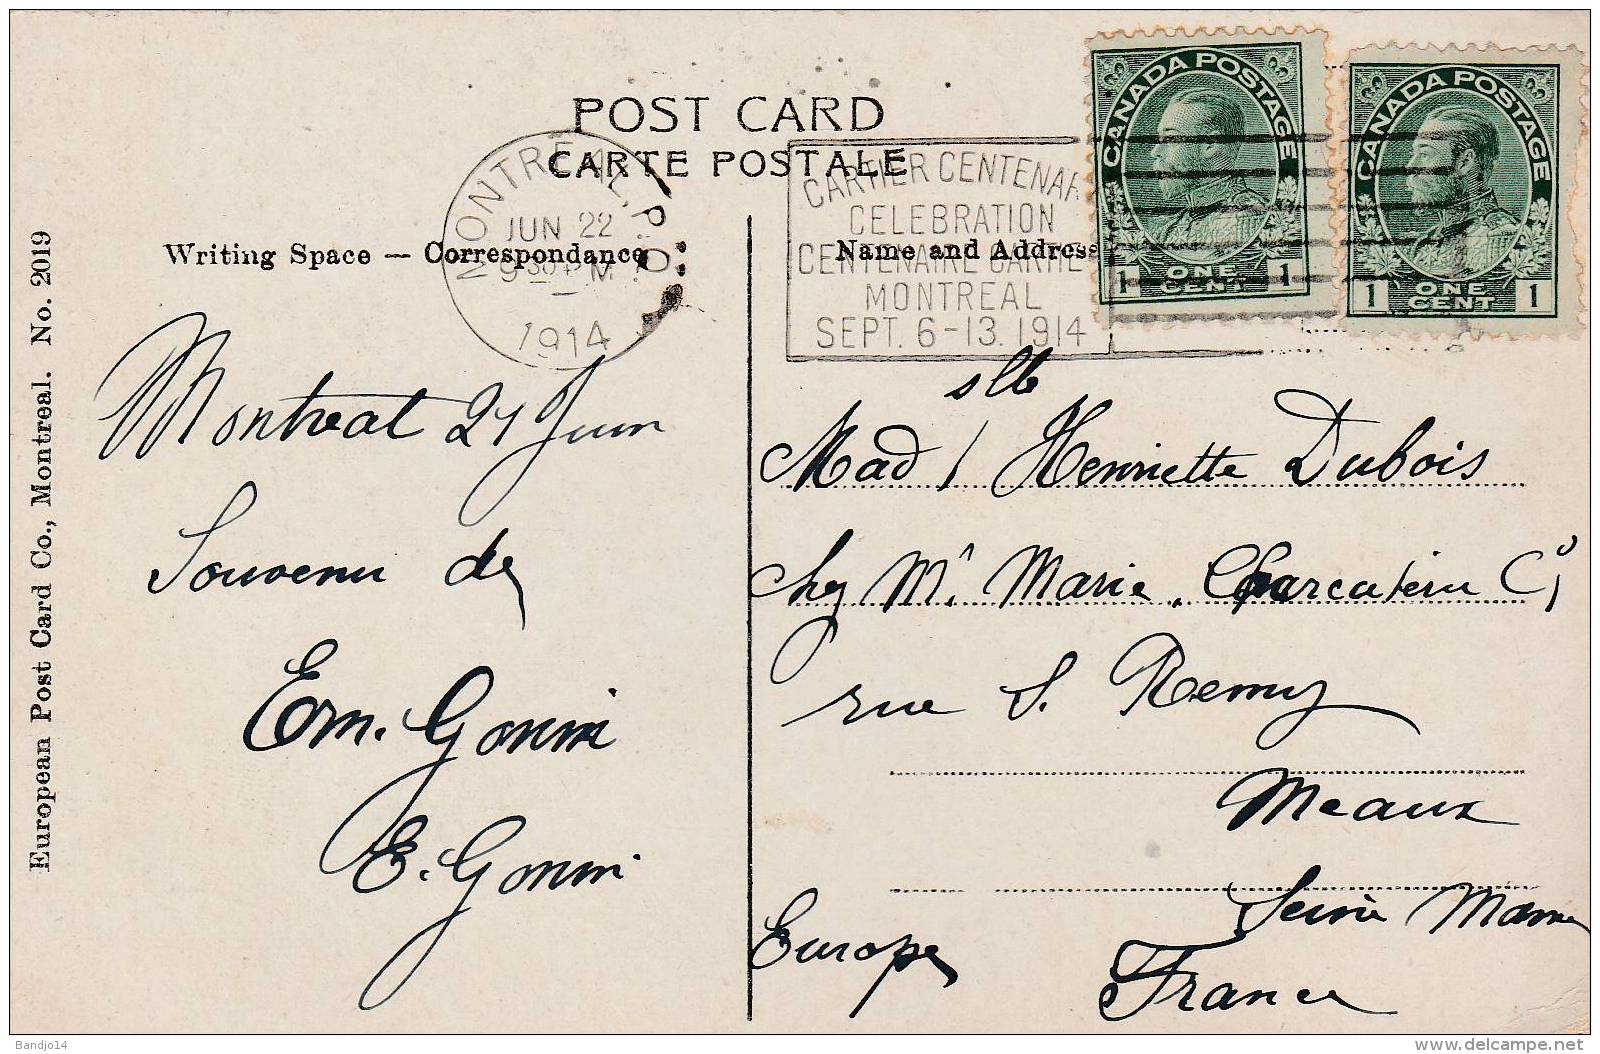 POST CARD
CARTE POSTALE
MONTREAL, P.Q.
JUN 22
1914
CARTIER CENTENAR
CELEBRATION
CENTENAIRE CARTIE
MONTREAL
SEPT. 6-13. 1914
CANADA POSTAGE
1 ONE CENT 1
CANADA POSTAGE
1 ONE CENT 1
Writing Space — Correspondance
Name and Address
European Post Card Co., Montreal. No. 2019
Montreal 21 Juin
Souvenir de
Em. Gonin
E. Gonin
slle
Mad / Henriette Dubois
chez Mr Marie. Charcuterie
rue S. Remy
Meaux
Seine Marne
Europe
France
Bandjo14
www.delcampe.net